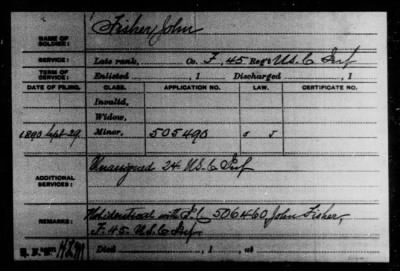 NAME OF SOLDIER: Fisher John
SERVICE: Late rank, Co. F, 45 Reg't U.S.C Inf
TERM OF SERVICE: Enlisted , 1 Discharged , 1
DATE OF FILING. CLASS. APPLICATION NO. LAW. CERTIFICATE NO.
Invalid,
Widow,
1890 Sept 29 Minor, 505490
ADDITIONAL SERVICES: Unassigned 24 U.S.C Inf
REMARKS: Not identical with 506460 John Fisher,
F. 45. U.S.C Inf.
Died , 1 , at